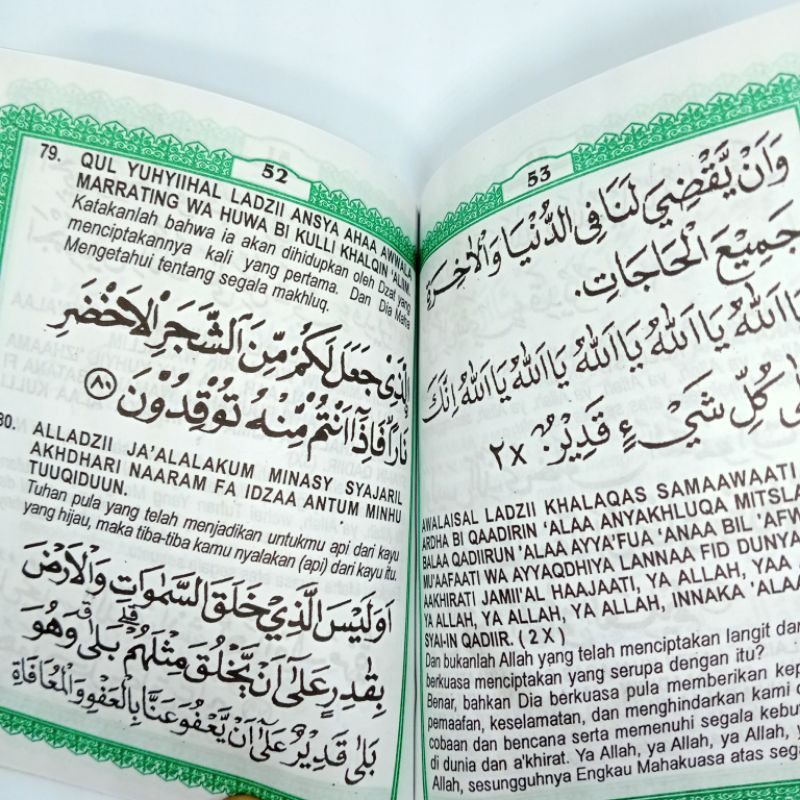 52
79. QUL YUHYIIHAL LADZII ANSYA AHAA AWWALA
MARRATING WA HUWA BI KULLI KHALQIN 'ALIIM.
Katakanlah bahwa ia akan dihidupkan oleh Dzat yang
menciptakannya kali yang pertama. Dan Dia Maha
Mengetahui tentang segala makhluq.
الَّذِيْ جَعَلَ لَكُمْ مِّنَ الشَّجَرِ الْاَخْضَرِ
نَارًا فَاِذَآ اَنْتُمْ مِّنْهُ تُوْقِدُوْنَ ٨٠
80. ALLADZII JA'ALALAKUM MINASY SYAJARIL
AKHDHARI NAARAM FA IDZAA ANTUM MINHU
TUUQIDUUN.
Tuhan pula yang telah menjadikan untukmu api dari kayu
yang hijau, maka tiba-tiba kamu nyalakan (api) dari kayu itu.
اَوَلَيْسَ الَّذِيْ خَلَقَ السَّمٰوٰتِ وَالْاَرْضَ
بِقٰدِرٍ عَلٰٓى اَنْ يَّخْلُقَ مِثْلَهُمْ بَلٰى وَهُوَ
بَلٰى قَدِيْرٌ عَلٰٓى اَنْ يَّعْفُوَ عَنَّا بِالْعَفْوِ وَالْمُعَافَاةِ
53
وَاَنْ يَّقْضِيَ لَنَا فِى الدُّنْيَا وَالْاٰخِرَةِ
جَمِيْعَ الْحَاجَاتِ.
يَااَللّٰهُ يَااَللّٰهُ يَااَللّٰهُ يَااَللّٰهُ يَااَللّٰهُ اِنَّكَ
كُلِّ شَيْءٍ قَدِيْرٌ ٢x
AWALAISAL LADZII KHALAQAS SAMAAWAATI
ARDHA BI QAADIRIN 'ALAA ANYAKHLUQA MITSLA
BALAA QADIIRUN 'ALAA AYYA'FUA 'ANAA BIL 'AFW
MU'AAFAATI WA AYYAQDHIYA LANNAA FID DUNYA
AAKHIRATI JAMII'AL HAAJAATI, YA ALLAH, YAA
YA ALLAH, YA ALLAH, YA ALLAH, INNAKA 'ALAA
SYAI-IN QADIIR. ( 2 X )
Dan bukanlah Allah yang telah menciptakan langit dan
berkuasa menciptakan yang serupa dengan itu?
Benar, bahkan Dia berkuasa pula memberikan kep
pemaafan, keselamatan, dan menghindarkan kami d
cobaan dan bencana serta memenuhi segala kebut
di dunia dan a'khirat. Ya Allah, ya Allah, ya Allah, y
Allah, sesungguhnya Engkau Mahakuasa atas sega